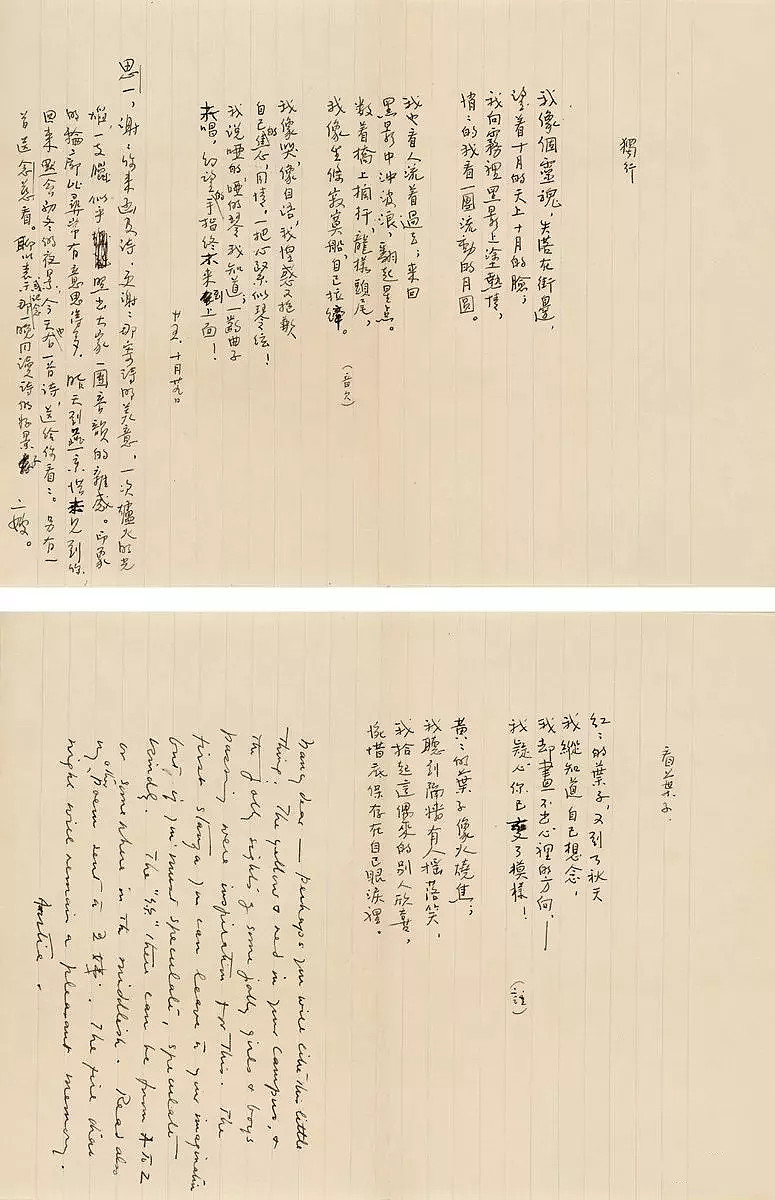 獨行
我像個靈魂，失落在街邊，
望着十月的天上十月的臉；
我向霧裡黑影上塗熱情，
悄悄的我看一團流動的月圓。
我也看人流着過去；來回
黑影中沖波浪，翻起星点。
数着橋上栏杆，龍樣頭尾，
我像坐條寂寞船，自己拉縴。（音欠）
我像哭，像自语，我惶惑又抱歉
自己的焦心，同情，一把心緊似琴弦！
我说哑的，哑的琴我知道；一齣曲子
未唱，幻望的手指终未来到上面！
廿五、十月廿九日
思一，谢：你来函及诗：更谢：那寄诗的美意，一次爐火的光
一支臘，似乎晃出大家一團音韻的雜感。印象
的輪廓比尋常有意思得多。昨天到燕京惜未見到你，
回来默会初冬的夜景，今天也有一首诗，送给你看：。另有一
首送念慈看。聊以表或纪念那一晚同读诗的好景
二嫂。
看葉子
红：的葉子，又到了秋天
我縱知道自己想念，
我却畫不出心裡的方向，——
我疑心你已變了模樣！（註）
黃：的葉子像火燒焦；
我聽到隔墙有人摇落笑，
我拾起這偶來的别人欣喜，
惋惜底保存在自己眼淚裡。
Nancy dear — perhaps you will like this little
thing. The yellow & red in your campus, &
the jolly sights of some jolly girls & boys
passing were inspiration for this. The
first stanza you can leave to your imagination
but, if you must speculate, speculate
kindly. The "你" there can be from A to Z
or somewhere in the middlish. Read also
my other poem sent to 王 . The fire
night will remain a pleasant memory.